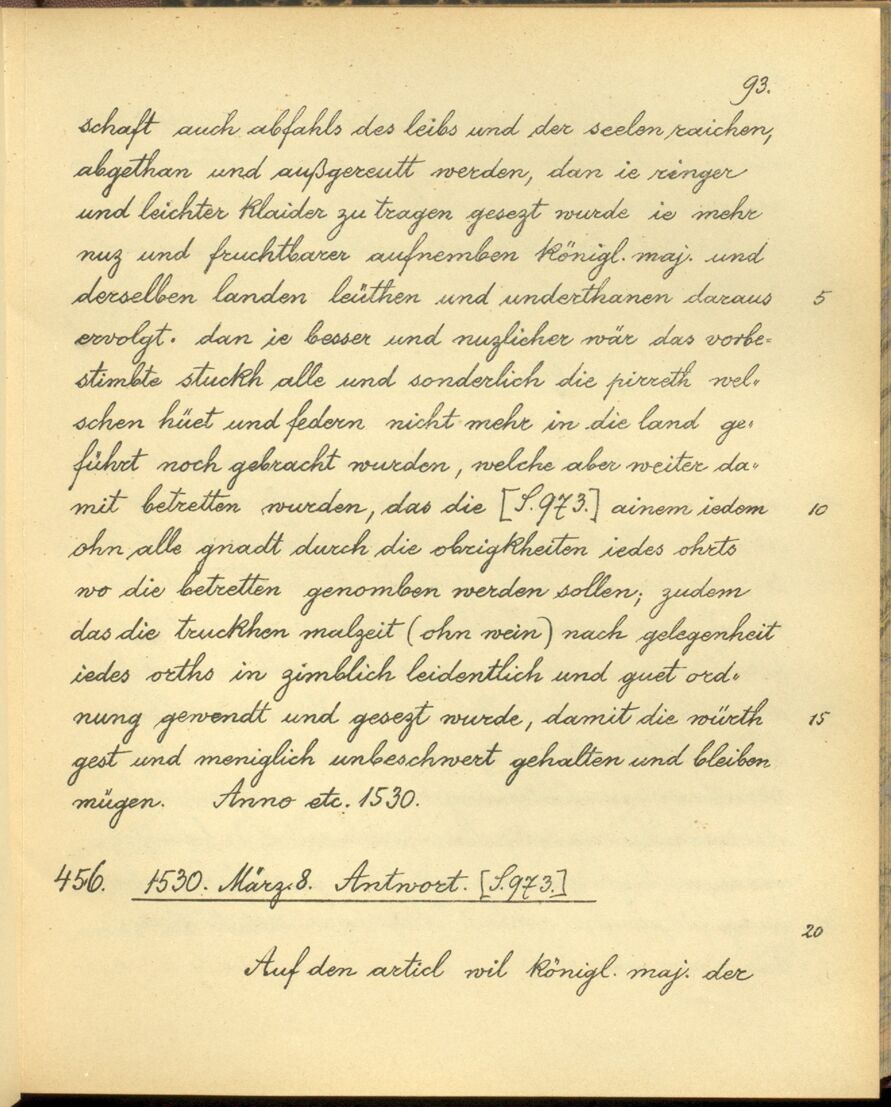 93.
schaft auch abfahls des leibs und der seelen raichen,
abgethan und außgereutt werden, dan ie ringer
und leichter klaider zu tragen gesezt wurde ie mehr
nuz und fruchtbarer aufnemben königl. maj. und
derselben landen leüthen und underthanen daraus 5
ervolgt. dan ie besser und nuzlicher wär das vorbe=
stimbte stuckh alle und sonderlich die pirreth wel„
schen hüet und federn nicht mehr in die land ge„
führt noch gebracht wurden, welche aber weiter da„
mit betretten wurden, das die [S. 973.] ainem iedem 10
ohn alle gnadt durch die obrigkheiten iedes ohrts
wo die betretten genomben werden sollen; zudem
das die truckhen malzeit (ohn wein) nach gelegenheit
iedes orths in zimblich leidentlich und guet ord„
nung gewendt und gesezt wurde, damit die würth 15
gest und meniglich unbeschwert gehalten und bleiben
mügen. Anno etc. 1530.
456. 1530. März. 8. Antwort. [S. 973.]
20
Auf den articl wil königl. maj. der